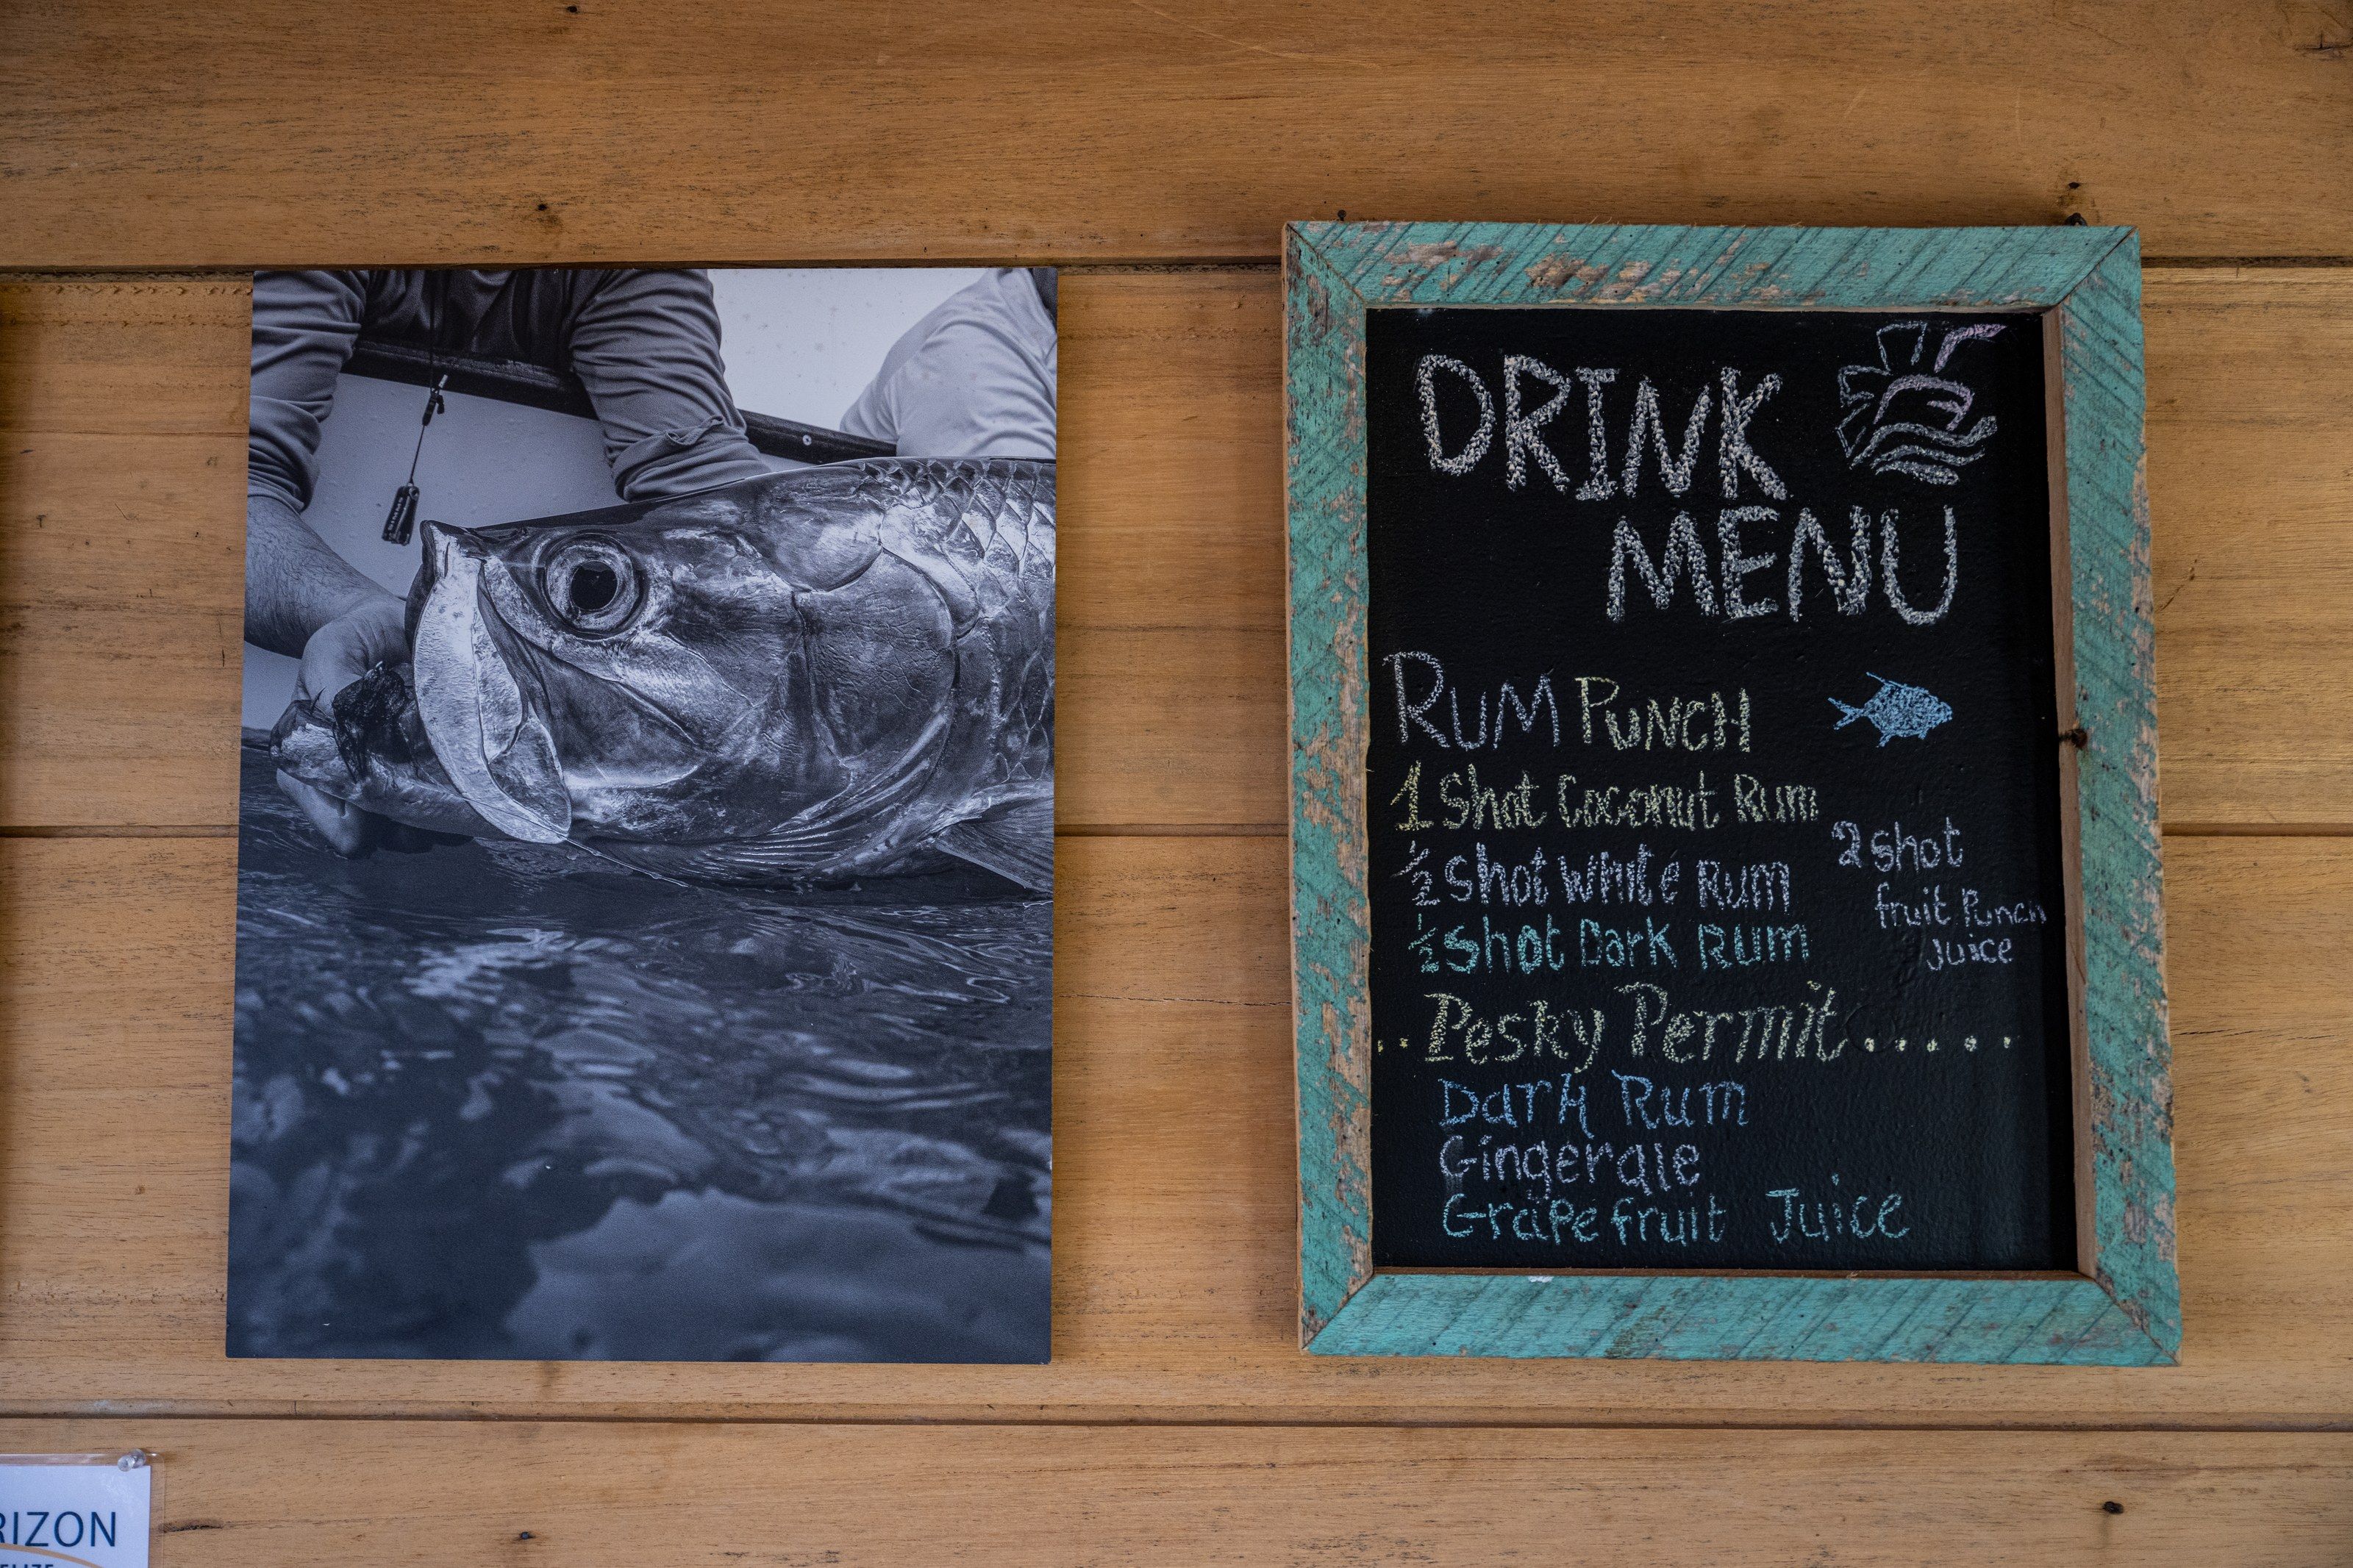 DRINK
MENU
RUM PUNCH
1 Shot Coconut Rum
½ Shot White Rum
½ Shot Dark Rum
2 Shot
fruit Punch
Juice
..Pesky Permit......
Dark Rum
Gingerale
Grapefruit Juice
RIZON